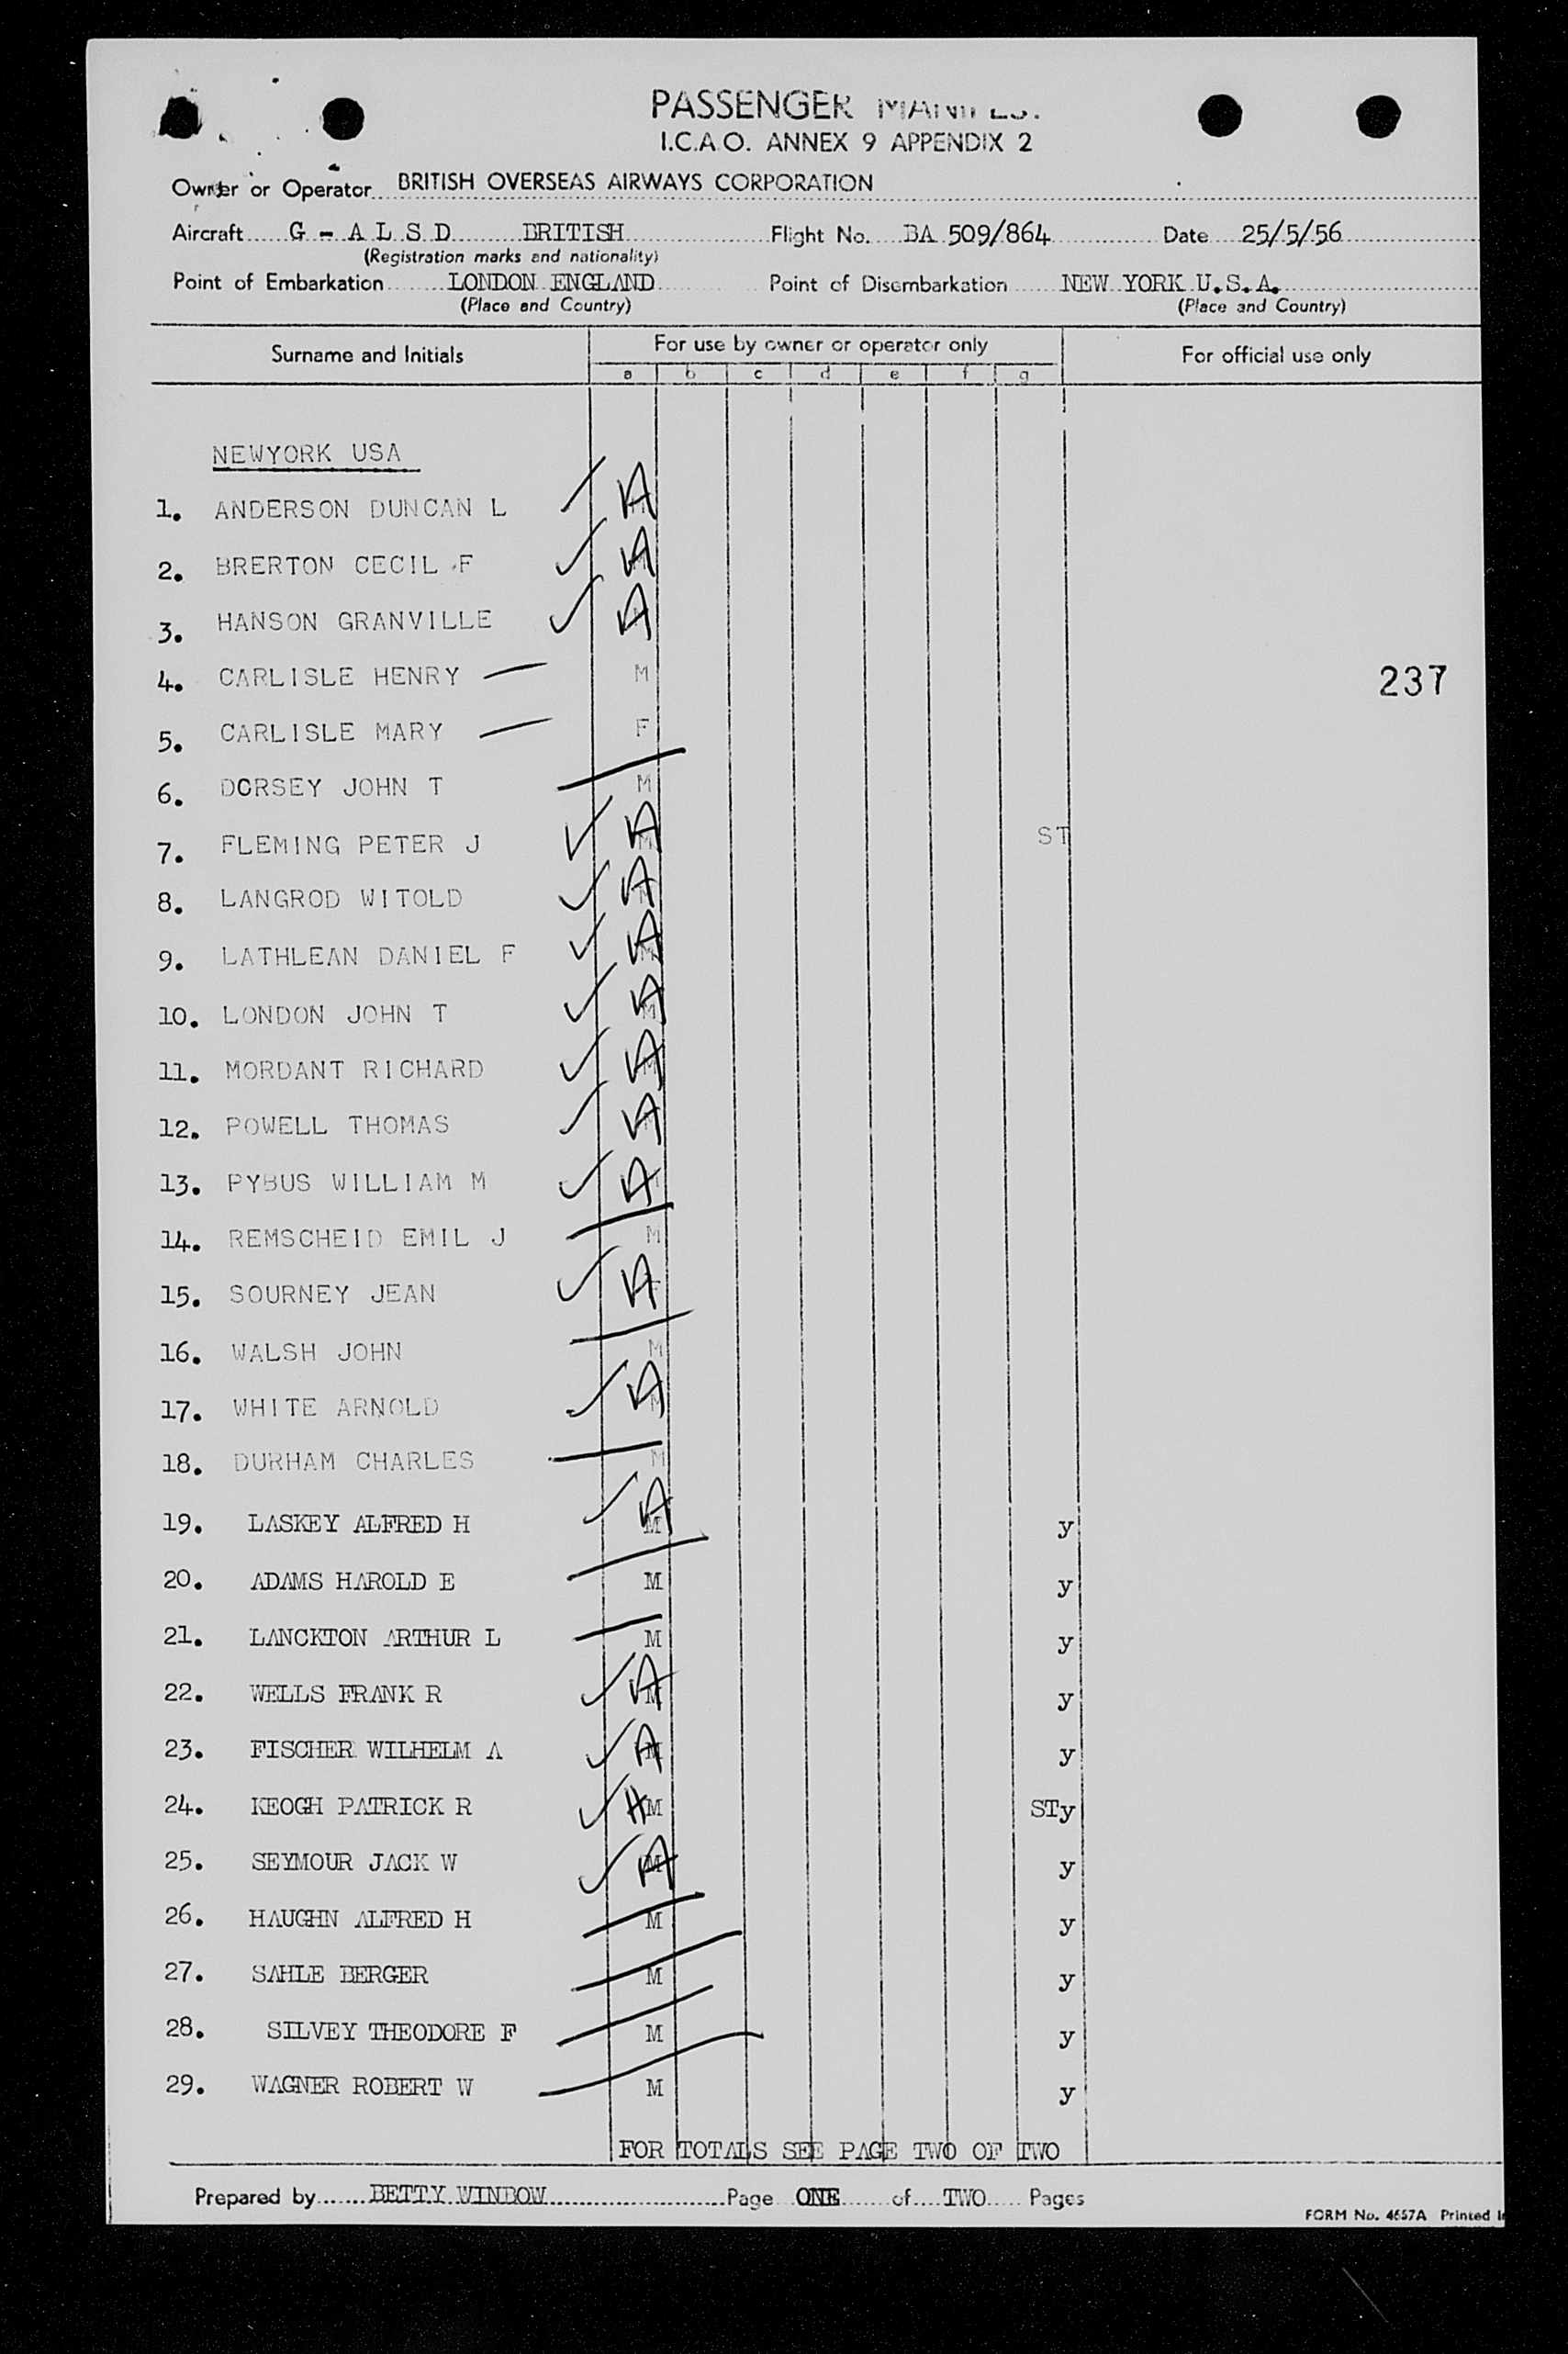 PASSENGER MANIFEST
I.C.A.O. ANNEX 9 APPENDIX 2
Owner or Operator BRITISH OVERSEAS AIRWAYS CORPORATION
Aircraft G - A L S D BRITISH Flight No. BA 509/864 Date 25/5/56
(Registration marks and nationality)
Point of Embarkation LONDON ENGLAND Point of Disembarkation NEW YORK U.S.A.
(Place and Country) (Place and Country)
Surname and Initials For use by owner or operator only For official use only
a b c d e f g
NEWYORK USA
1. ANDERSON DUNCAN L A
2. BRERTON CECIL F A
3. HANSON GRANVILLE A
4. CARLISLE HENRY M 237
5. CARLISLE MARY F
6. DORSEY JOHN T M
7. FLEMING PETER J M A ST
8. LANGROD WITOLD A
9. LATHLEAN DANIEL F M A
10. LONDON JOHN T M A
11. MORDANT RICHARD M A
12. POWELL THOMAS A
13. PYBUS WILLIAM M A
14. REMSCHEID EMIL J M
15. SOURNEY JEAN F A
16. WALSH JOHN M
17. WHITE ARNOLD M A
18. DURHAM CHARLES M
19. LASKEY ALFRED H M A y
20. ADAMS HAROLD E M y
21. LANCKTON ARTHUR L M y
22. WELLS FRANK R M A y
23. FISCHER WILHELM A M A y
24. KEOGH PATRICK R M STy
25. SEYMOUR JACK W M A y
26. HAUGHN ALFRED H M y
27. SAHLE BERGER M y
28. SILVEY THEODORE F M y
29. WAGNER ROBERT W M y
FOR TOTALS SEE PAGE TWO OF TWO
Prepared by BETTY WINDOW Page ONE of TWO Pages
FORM No. 4657A Printed